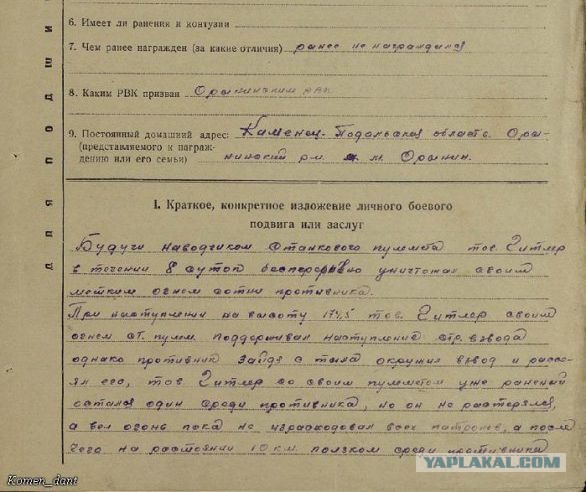 для подшивки
6. Имеет ли ранения и контузии
7. Чем ранее награжден (за какие отличия) ранее не награждался
8. Каким РВК призван Орынинским рвк
9. Постоянный домашний адрес: Каменец-Подольская область. Оры-
(представляемого к награж-
дению или его семьи) нинский р-н. м. Орынин.
I. Краткое, конкретное изложение личного боевого
подвига или заслуг
Будучи наводчиком станкового пулемета тов. Гитлер
в течении 8 суток беспрерывно уничтожал своим
метким огнем сотни противника.
При наступлении на высоту 174,5 тов. Гитлер своим
огнем ст. пулем. поддерживал наступление стр. взвода
однако противник зайдя с тыла окружил взвод и рассе-
ял его, тов. Гитлер со своим пулеметом уже раненый
остался один среди противника, но он не растерялся,
а вел огонь пока не израсходовал всех патронов, а после
чего на расстоянии 10 км. ползком среди противника
YAPLAKAL.COM
Komen_dant